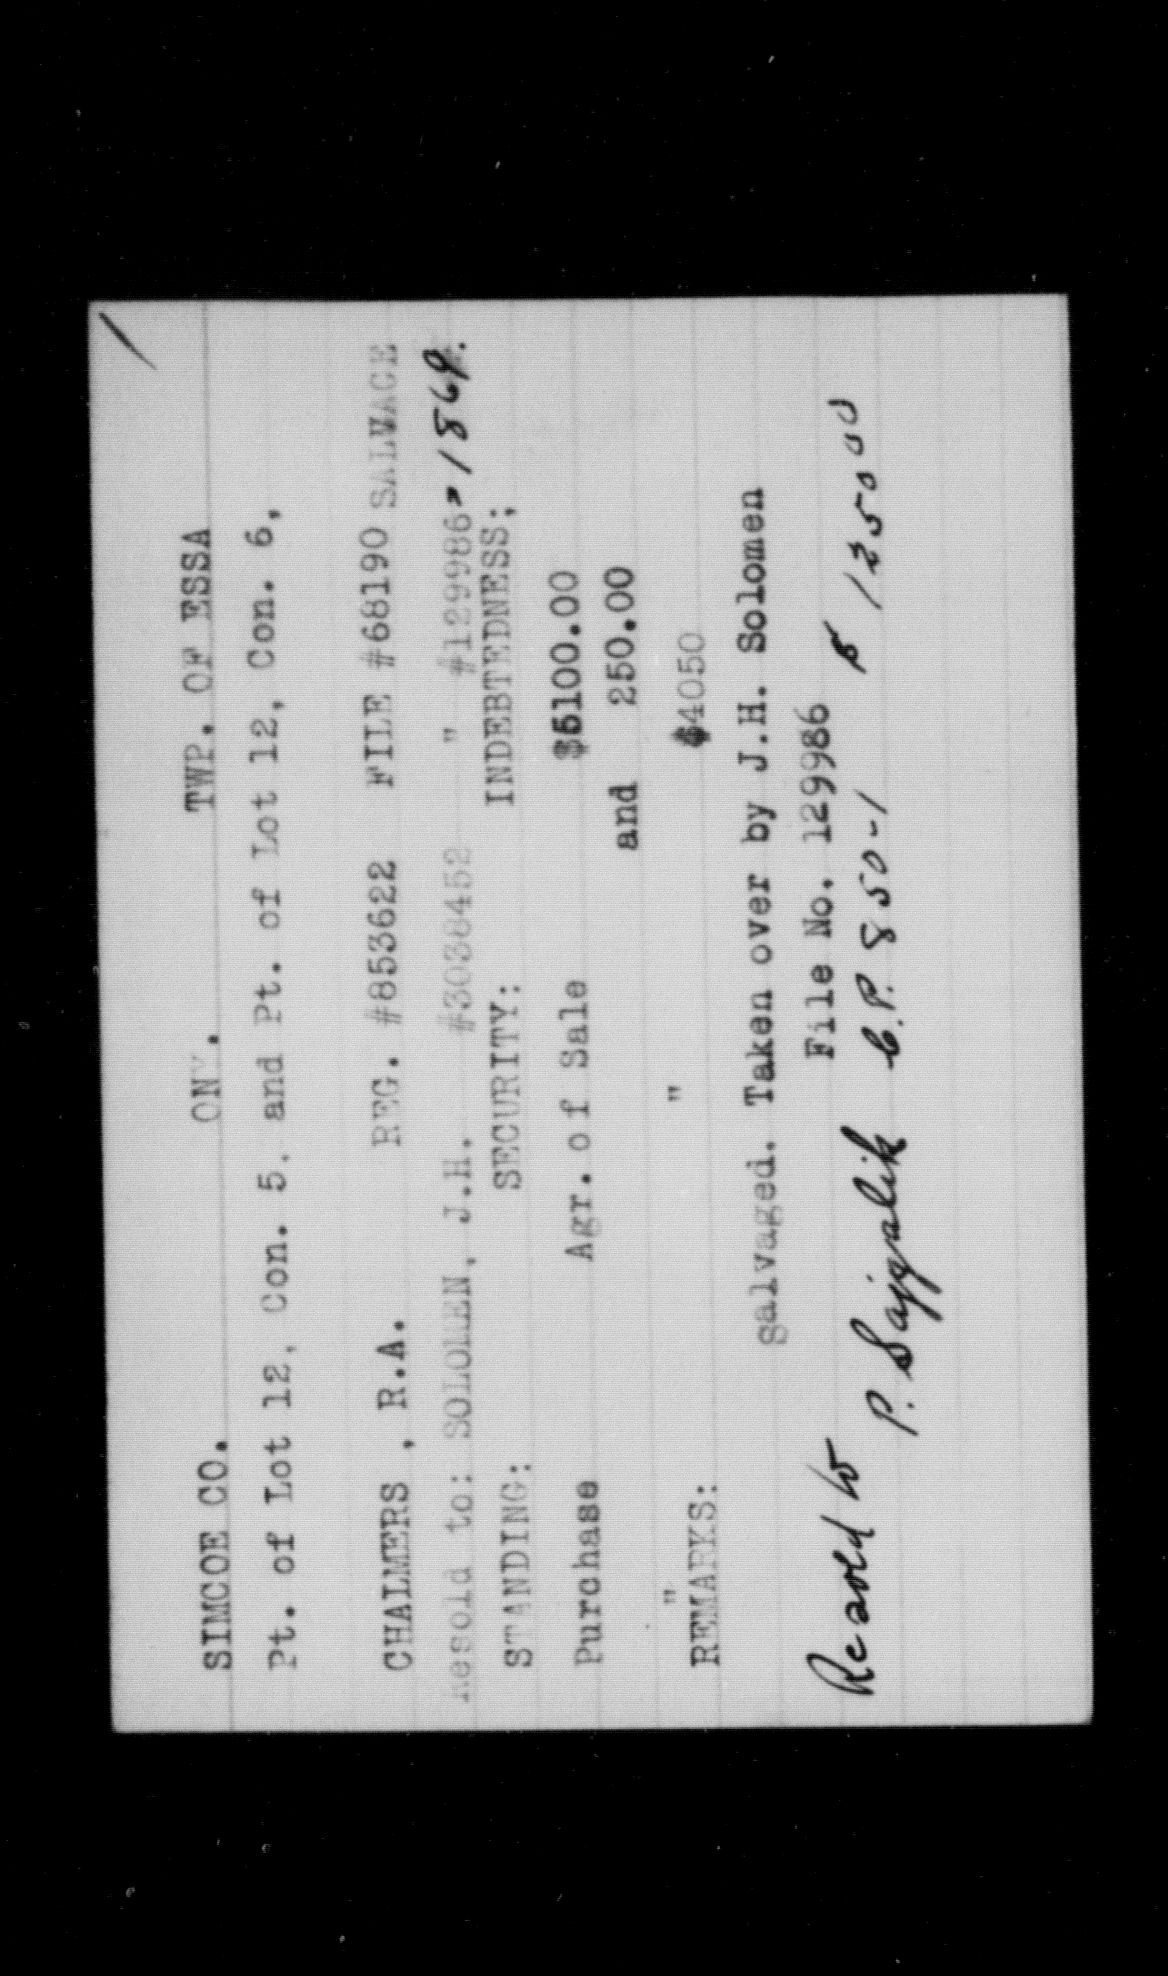 /
SIMCOE CO. ONT. TWP. OF ESSA
Pt. of Lot 12, Con. 5, and Pt. of Lot 12, Con. 6,
CHALMERS, R.A. REG. #853622 FILE #68190 SALVAGE
Resold to: SOLOMEN, J.H. #3038452 " #129986-1869.
STANDING: SECURITY: INDEBTEDNESS:
Purchase Agr. of Sale $5100.00
and 250.00
" " $4050
REMARKS:
Salvaged. Taken over by J.H. Solomen
File No. 129986
Resold to P. Sajgalik C.P. 850-1 $ 12500